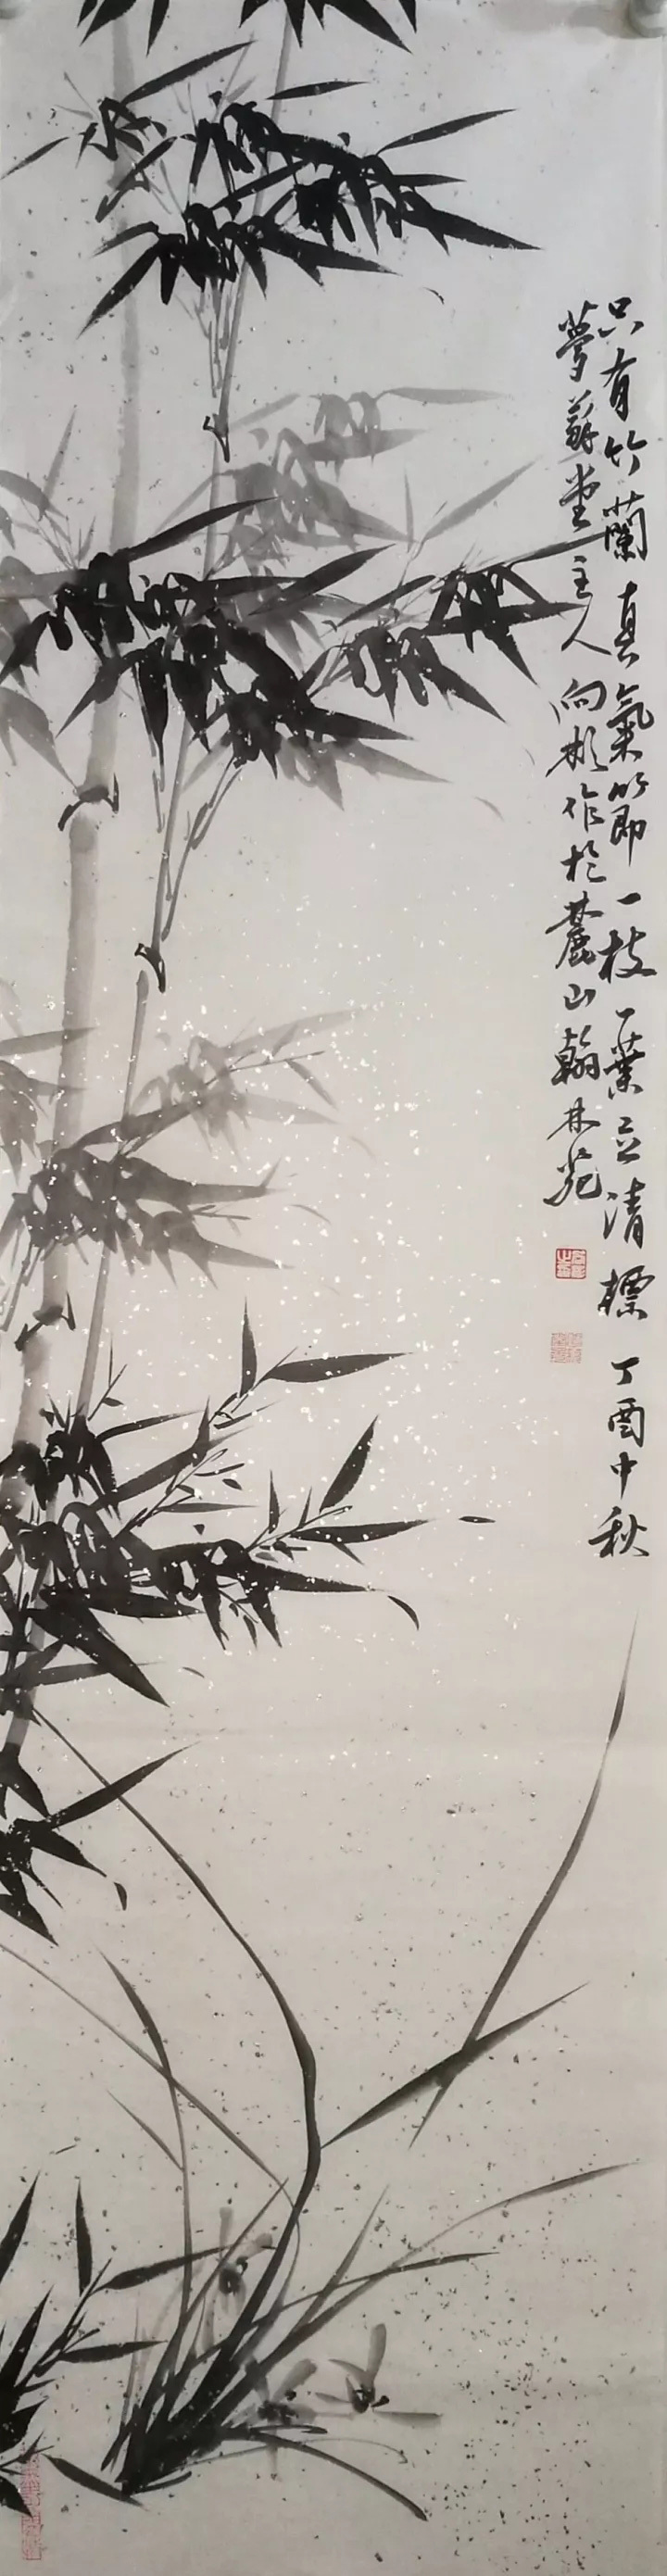 只有竹蘭真氣節一枝一葉立清標丁酉中秋
夢蘇堂主人向彬作於麓山翰林苑